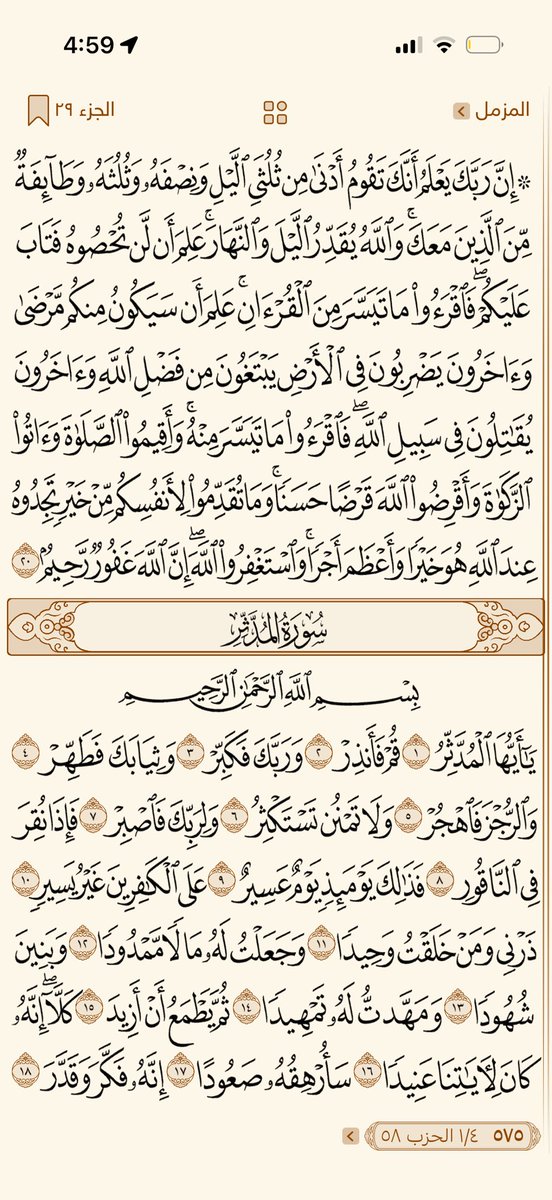 4:59
المزمل
الجزء ٢٩
۞ إِنَّ رَبَّكَ يَعْلَمُ أَنَّكَ تَقُومُ أَدْنَىٰ مِن ثُلُثَيِ ٱلَّيْلِ وَنِصْفَهُۥ وَثُلُثَهُۥ وَطَآئِفَةٌ
مِّنَ ٱلَّذِينَ مَعَكَۚ وَٱللَّهُ يُقَدِّرُ ٱلَّيْلَ وَٱلنَّهَارَۚ عَلِمَ أَن لَّن تُحْصُوهُ فَتَابَ
عَلَيْكُمْۖ فَٱقْرَءُوا۟ مَا تَيَسَّرَ مِنَ ٱلْقُرْءَانِۚ عَلِمَ أَن سَيَكُونُ مِنكُم مَّرْضَىٰ
وَءَاخَرُونَ يَضْرِبُونَ فِى ٱلْأَرْضِ يَبْتَغُونَ مِن فَضْلِ ٱللَّهِ وَءَاخَرُونَ
يُقَٰتِلُونَ فِى سَبِيلِ ٱللَّهِۖ فَٱقْرَءُوا۟ مَا تَيَسَّرَ مِنْهُۚ وَأَقِيمُوا۟ ٱلصَّلَوٰةَ وَءَاتُوا۟
ٱلزَّكَوٰةَ وَأَقْرِضُوا۟ ٱللَّهَ قَرْضًا حَسَنًاۚ وَمَا تُقَدِّمُوا۟ لِأَنفُسِكُم مِّنْ خَيْرٍ تَجِدُوهُ
عِندَ ٱللَّهِ هُوَ خَيْرًا وَأَعْظَمَ أَجْرًاۚ وَٱسْتَغْفِرُوا۟ ٱللَّهَۖ إِنَّ ٱللَّهَ غَفُورٌ رَّحِيمٌۢ ٢٠
سُورَةُ المُدَّثِّرِ
بِسْمِ ٱللَّهِ ٱلرَّحْمَٰنِ ٱلرَّحِيمِ
يَٰٓأَيُّهَا ٱلْمُدَّثِّرُ ١ قُمْ فَأَنذِرْ ٢ وَرَبَّكَ فَكَبِّرْ ٣ وَثِيَابَكَ فَطَهِّرْ ٤
وَٱلرُّجْزَ فَٱهْجُرْ ٥ وَلَا تَمْنُن تَسْتَكْثِرُ ٦ وَلِرَبِّكَ فَٱصْبِرْ ٧ فَإِذَا نُقِرَ
فِى ٱلنَّاقُورِ ٨ فَذَٰلِكَ يَوْمَئِذٍ يَوْمٌ عَسِيرٌ ٩ عَلَى ٱلْكَٰفِرِينَ غَيْرُ يَسِيرٍ ١٠
ذَرْنِى وَمَنْ خَلَقْتُ وَحِيدًا ١١ وَجَعَلْتُ لَهُۥ مَالًا مَّمْدُودًا ١٢ وَبَنِينَ
شُهُودًا ١٣ وَمَهَّدتُّ لَهُۥ تَمْهِيدًا ١٤ ثُمَّ يَطْمَعُ أَنْ أَزِيدَ ١٥ كَلَّآۖ إِنَّهُۥ
كَانَ لِءَايَٰتِنَا عَنِيدًا ١٦ سَأُرْهِقُهُۥ صَعُودًا ١٧ إِنَّهُۥ فَكَّرَ وَقَدَّرَ ١٨
٥٧٥ ١/٤ الحزب ٥٨